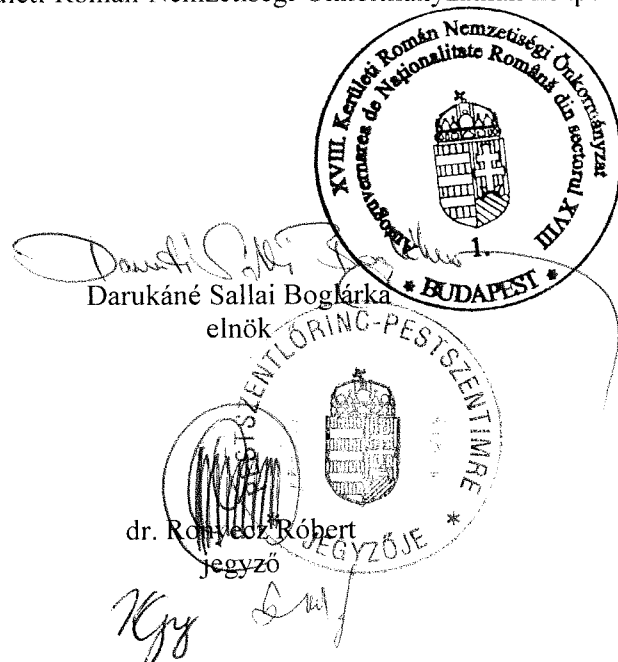 XVIII. Kerületi Román Nemzetiségi Önkormányzat
Autoguvernarea de Naţionalitate Română din sectorul XVIII
1.
* BUDAPEST *
Darukáné Sallai Boglárka
elnök
PESTSZENTLŐRINC-PESTSZENTIMRE
* JEGYZŐJE *
dr. Ronyecz Róbert
jegyző